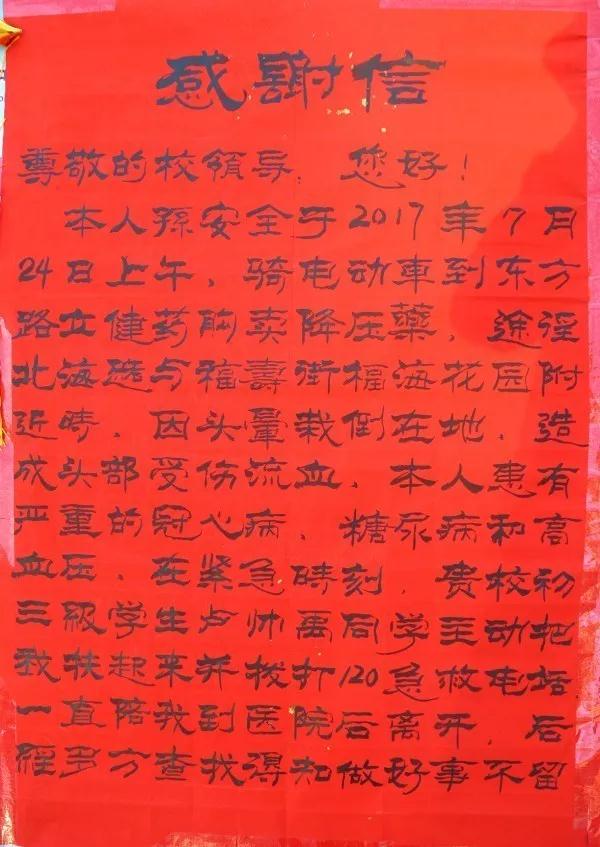 感謝信
尊敬的校领导，您好！
本人孫安全于2017年7月
24日上午，骑电动車到东方
路立健药房卖降压藥，途淫
北海道与福壽街福海花园附
近時，因头暈栽倒在地，造
成头部受伤流血，本人患有
严重的冠心病，糖尿病和高
血压，在紧急時刻，贵校初
三級学生卢帅禹同学主动把
我扶起来并拨打120急救电话
一直陪我到医院后离开，后
經多方查找得知做好事不留